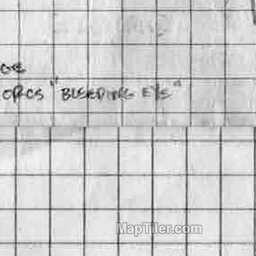 ORCS "BLEEDING EYE"
MapTiler.com